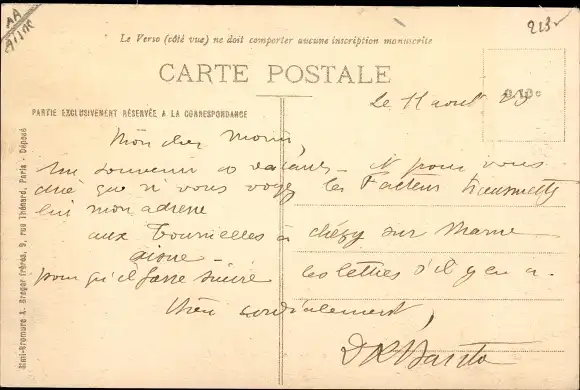 AA
213
Le Verso (côté vue) ne doit comporter aucune inscription manuscrite
CARTE POSTALE
Le 11 aout
PARTIE EXCLUSIVEMENT RÉSERVÉE A LA CORRESPONDANCE
Mon cher
Un souvenir de vacances - et pour vous
dire que si vous voyez le Facteur
lui mon adresse
aux Tournelles à chézy sur Marne
aisne -
pour qu'il fasse suivre les lettres s'il y en a -
bien cordialement,
Simi-Bromure A. Breger frères, 9, rue Thénard, Paris - Déposé